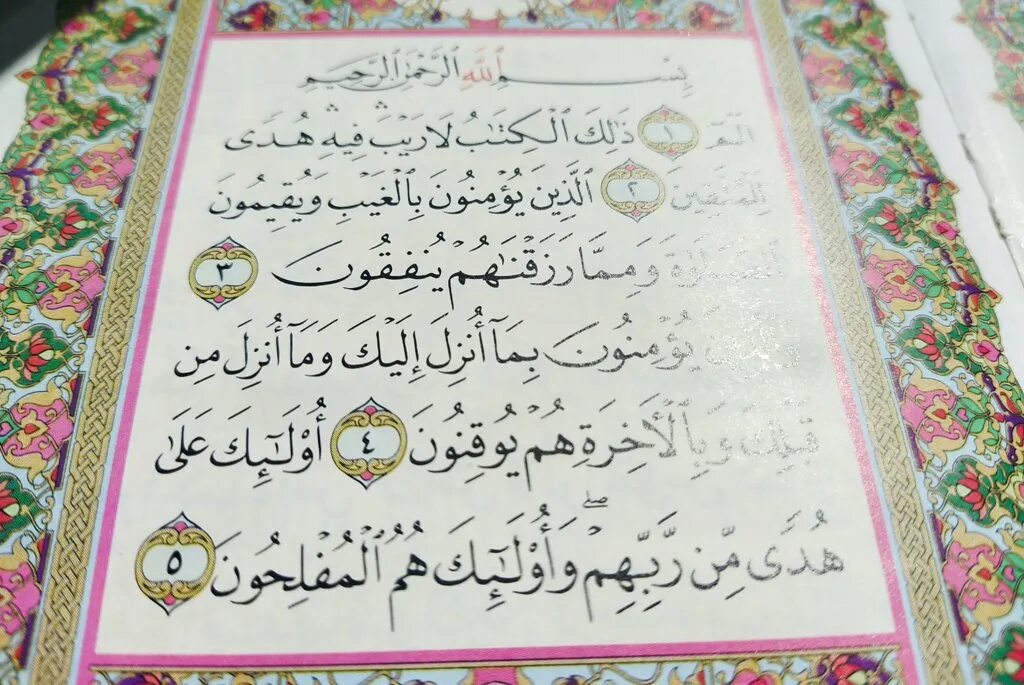 بِسْمِ ٱللَّهِ ٱلرَّحْمَٰنِ ٱلرَّحِيمِ
الٓمٓ ١ ذَٰلِكَ ٱلْكِتَٰبُ لَا رَيْبَۛ فِيهِۛ هُدًى
لِّلْمُتَّقِينَ ٢ ٱلَّذِينَ يُؤْمِنُونَ بِٱلْغَيْبِ وَيُقِيمُونَ
ٱلصَّلَوٰةَ وَمِمَّا رَزَقْنَٰهُمْ يُنفِقُونَ ٣
يُؤْمِنُونَ بِمَآ أُنزِلَ إِلَيْكَ وَمَآ أُنزِلَ مِن
قَبْلِكَ وَبِٱلْأَخِرَةِ هُمْ يُوقِنُونَ ٤ أُو۟لَٰٓئِكَ عَلَىٰ
هُدًى مِّن رَّبِّهِمْۖ وَأُو۟لَٰٓئِكَ هُمُ ٱلْمُفْلِحُونَ ٥